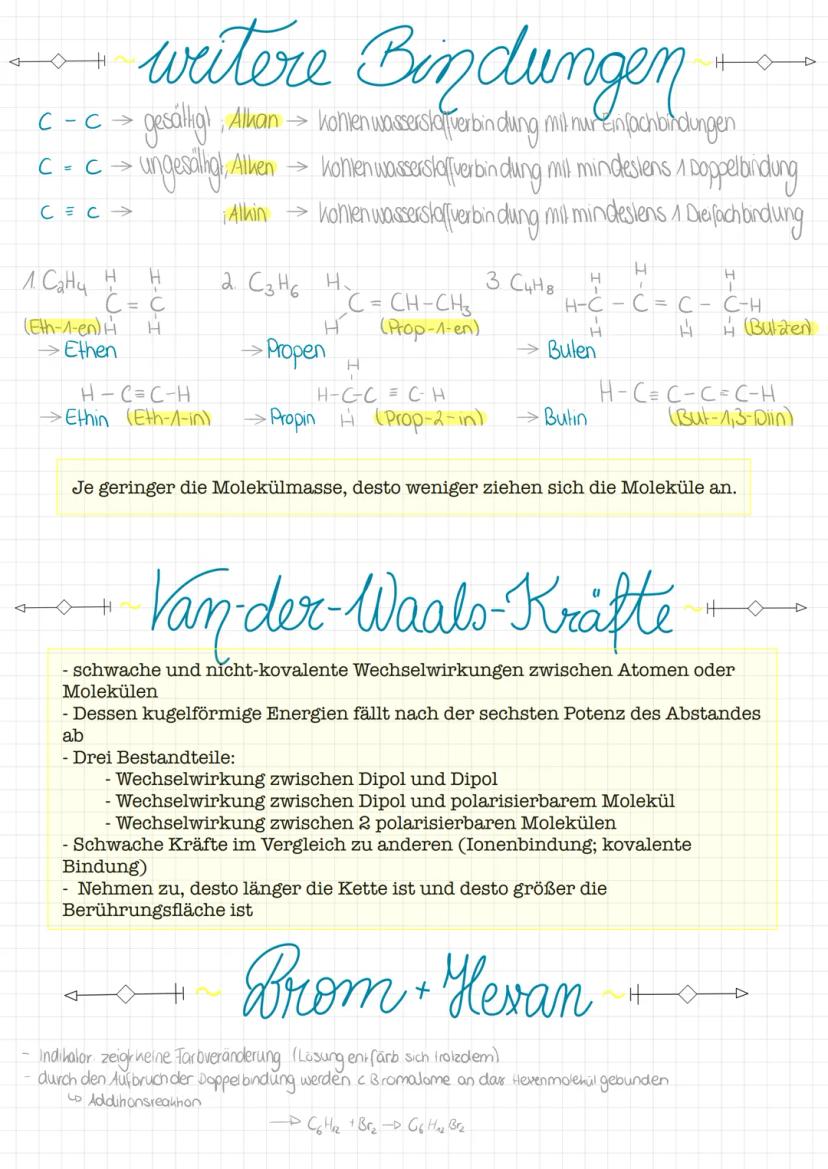 weitere Bindungen
C - C → gesättigt, Alkan → Kohlenwasserstoffverbindung mit nur Einfachbindungen
C = C → ungesättigt, Alken → Kohlenwasserstoffverbindung mit mindestens 1 Doppelbindung
C ≡ C → , Alkin → Kohlenwasserstoffverbindung mit mindestens 1 Dreifachbindung
1. C₂H₄ H H 2. C₃H₆ H 3 C₄H₈ H H H
C = C C = CH-CH₃ H-C - C = C - C-H
(Eth-1-en) H H H (Prop-1-en) H H H (But-2en)
→ Ethen → Propen → Buten
H
H - C≡C-H H-C-C ≡ C-H H-C≡ C-C≡C-H
→ Ethin (Eth-1-in) → Propin H (Prop-2-in) → Butin (But-1,3-Diin)
Je geringer die Molekülmasse, desto weniger ziehen sich die Moleküle an.
Van-der-Waals-Kräfte
- schwache und nicht-kovalente Wechselwirkungen zwischen Atomen oder
Molekülen
- Dessen kugelförmige Energien fällt nach der sechsten Potenz des Abstandes
ab
- Drei Bestandteile:
- Wechselwirkung zwischen Dipol und Dipol
- Wechselwirkung zwischen Dipol und polarisierbarem Molekül
- Wechselwirkung zwischen 2 polarisierbaren Molekülen
- Schwache Kräfte im Vergleich zu anderen (Ionenbindung; kovalente
Bindung)
- Nehmen zu, desto länger die Kette ist und desto größer die
Berührungsfläche ist
Brom + Hexan
- Indikator zeigt keine Farbveränderung (Lösung entfärb sich trotzdem)
- durch den Aufbruch der Doppelbindung werden 2 Bromatome an das Hexenmolekül gebunden
↳ Additionsreaktion
→ C₆H₁₂ + Br₂ → C₆H₁₂Br₂